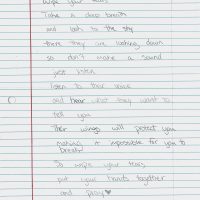 wipe your tears
Take a deep breath
and look to the sky
there they are looking down
so don't make a sound
just listen
listen to their voice
and hear what they want to
tell you
their wings will protect you
making it impossible for you to
breath
So wipe your tears
put your hands together
and pray ♥